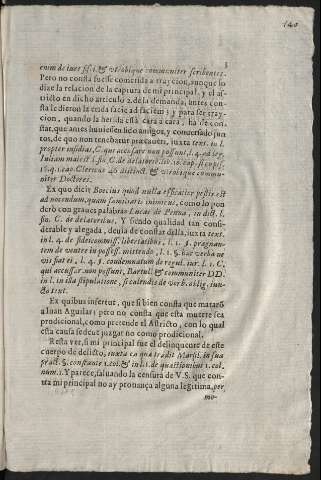 140
5
enim de iure fisci & vtrobique communiter scribentes.
Pero no consta fuesse cometida a trayciõ, aunque lo
dize la relacion de la captura de mi principal, y el as-
tricto en dicho articulo 2. de la demanda, antes cons-
ta le dieron la erida facie ad faciem; y para ser tray-
cion, quando la herida està cara à cara, ha de cons-
tar, que antes huuiessen sido amigos, y conuersado jun-
tos, de quo non tenebatur præcauere, iuxta text. in l.
propter insidias, C. qui accusare non possunt, l. 4. ad leg.
Iul. maiest.
15. q. 1. cap. Clericus 46 distinct. & vtrobique commu-
niter Doctores.
Ex quo dicit Boecius quod nulla efficatior pestis est
ad nocendum, quam familiaris inimicus, como lo pon
derò con graues palabras Lucas de Penna, in dict. l.
C. de delatoribus. Y siendo qualidad tan consi-
derable y alegada, deuia de constar della, iuxta text.
in l. 4. de fideicommiss. libertatibus, l. 1. §. pregnan-
tem de ventre in possess. mittendo, l. 1. §. hæc verba ne
vis fiat ei, l. 4. §. condemnatum de regul. iur. l. 1. C.
qui accusar non possunt, Bartul. & communiter DD.
in l. in illa stipulatione, si calendis de verb. oblig. iun-
cto text.
Ex quibus infertur, que si bien consta que mataró
a Iuan Aguilar; pero no consta que esta muerte sea
prodicional, como pretende el Astricto, con lo qual
esta causa se deue juzgar no como prodicional.
Resta ver, si mi principal fue el delinquente de este
cuerpo de delicto, iuxta ea quæ tradit Marsil. in sua
pract. §. constante 1. col. & in l. 1. de quæstionibus 1. col.
num. 1. Y parece, saluando la censura de V.S. que con-
tra mi principal no ay prouança alguna legitima, per
mo-